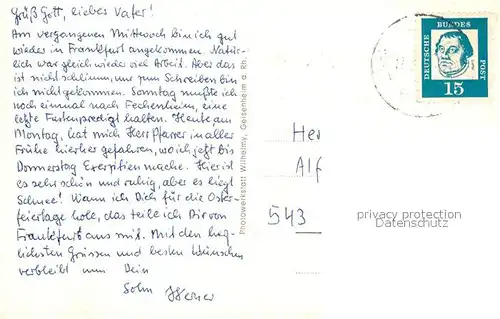 Grüß Gott, lieber Vater!
Am vergangenen Mittwoch bin ich gut
wieder in Frankfurt angekommen. Natür-
lich war gleich wieder viel Arbeit. Aber das
ist nicht schlimm, nur zum Schreiben bin
ich nicht gekommen. Sonntag mußte ich
noch einmal nach Fechenheim, eine
letzte Fastenpredigt halten. Heute am
Montag, hat mich Herr Pfarrer in aller
Frühe hierher gefahren, wo ich jetzt bis
Donnerstag Exerzitien mache. Hier ist
es sehr schön und ruhig, aber es liegt
Schnee! Wann ich Dich für die Oster-
feiertage hole, das teile ich Dir von
Frankfurt aus mit. Mit den herz-
lichsten Grüssen und besten Wünschen
verbleibt nun Dein
Sohn Werner
Photowerkstatt Wilhelmy, Geisenheim a. Rh.
DEUTSCHE
BUNDES
POST
15
Her
Alf
543
privacy protection
Datenschutz